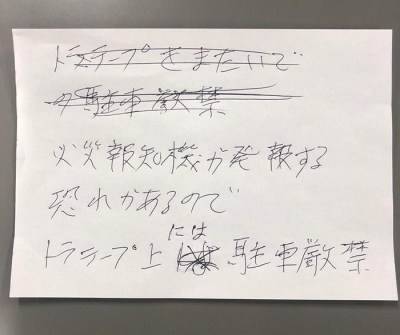 トラテープをまたいで
駐車厳禁
火災報知機が発報する
恐れがあるので
トラテープ上には駐車厳禁